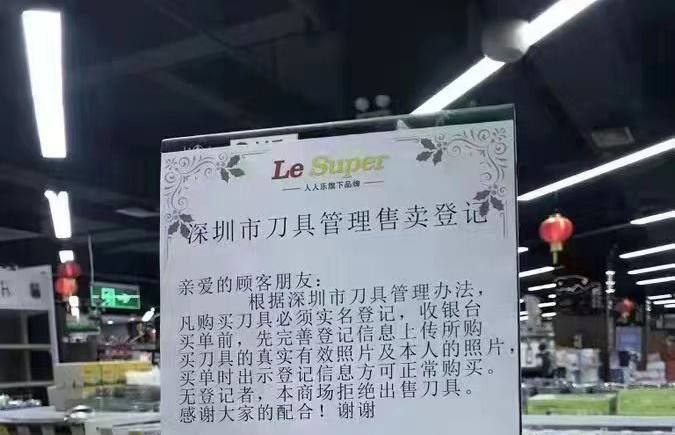 Le Super
人人乐旗下品牌
深圳市刀具管理售卖登记
亲爱的顾客朋友：
根据深圳市刀具管理办法，
凡购买刀具必须实名登记，收银台
买单前，先完善登记信息上传所购
买刀具的真实有效照片及本人的照片，
买单时出示登记信息方可正常购买。
无登记者，本商场拒绝出售刀具。
感谢大家的配合！谢谢